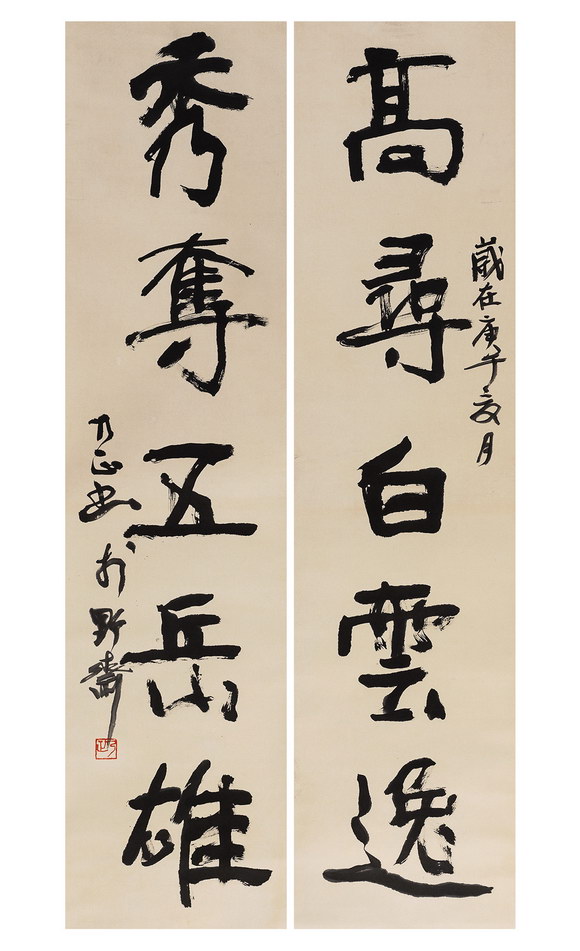 歲在庚午亥月
高尋白雲逸
秀奪五岳雄
乃正書於野齋